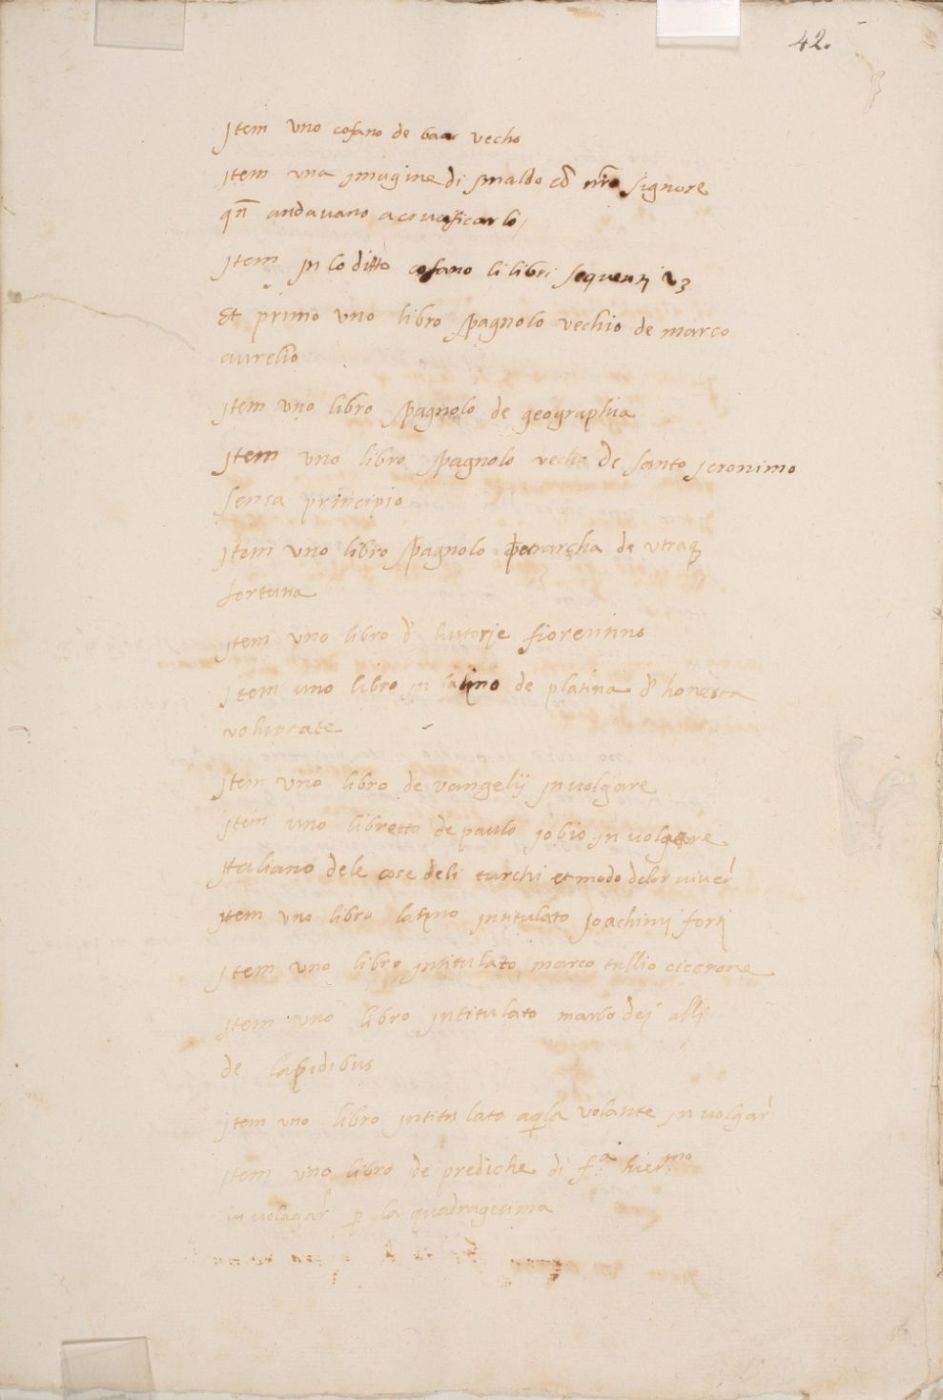 42.
jtem vno cofano de vecho
jtem vna jmagine di smaldo cō nr̄o signore
qn̄ andauano a
jtem jn lo ditto cofano li libri sequenti vz
Et primo vno libro spagnolo vechio de marco
aurelio
jtem vno libro spagnolo de geographia
jtem vno libro spagnolo vecho de santo jeronimo
sensa principio
jtem vno libro spagnolo petrarcha de vtraq
fortuna
jtem vno libro d' historje fiorentino
jtem vno libro jn latino de platina d' honesta
voluptate
jtem vno libro de vangelij jn volgare
jtem vno libretto de paulo jobio jn volgare
jtaliano dele cose deli turchi et modo delor viuer'
jtem vno libro latino jntitulato joachimj fortj
jtem vno libro jntitulato marco tullio cicerone
jtem vno libro jntitulato marbodej
de lapidibus
jtem vno libro jntitulato aq̄la volante jn volgar'
jtem vno libro de prediche di f.a hier.mo
in volgar' p la quadragesima